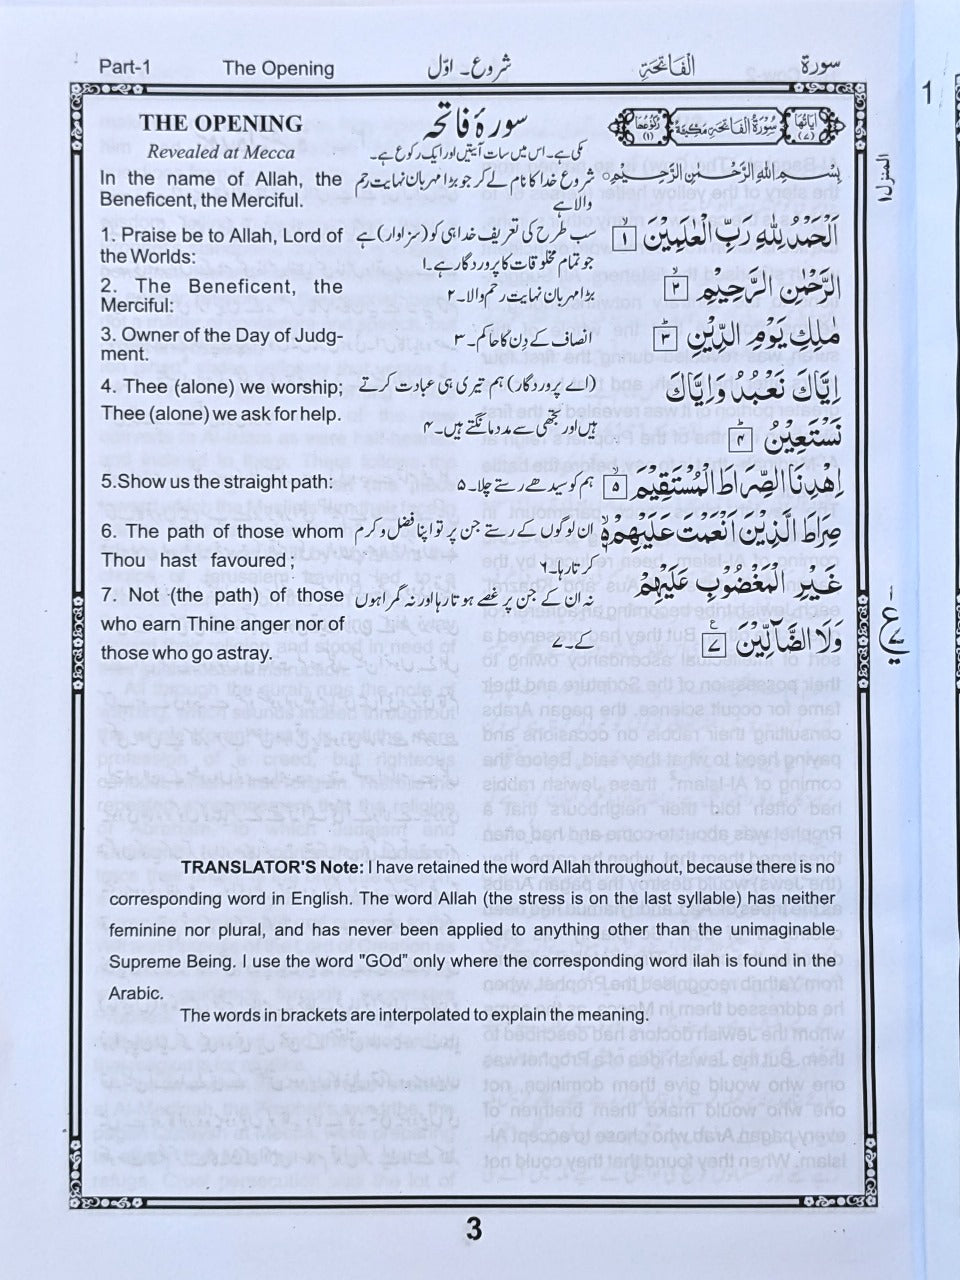 Part-1 The Opening شروع۔ اوّل الفاتحۃ سورۃ
1
المنزل ۱
THE OPENING
Revealed at Mecca
In the name of Allah, the
Beneficent, the Merciful.
1. Praise be to Allah, Lord of
the Worlds:
2. The Beneficent, the
Merciful:
3. Owner of the Day of Judg-
ment.
4. Thee (alone) we worship;
Thee (alone) we ask for help.
5.Show us the straight path:
6. The path of those whom
Thou hast favoured ;
7. Not (the path) of those
who earn Thine anger nor of
those who go astray.
سورۂ فاتحہ
مکی ہے۔ اس میں سات آیتیں اور ایک رکوع ہے۔
شروع خدا کا نام لے کر جو بڑا مہربان نہایت رحم
والا ہے
سب طرح کی تعریف خدا ہی کو (سزاوار) ہے
جو تمام مخلوقات کا پروردگار ہے۔۱
بڑا مہربان نہایت رحم والا۔۲
انصاف کے دن کا حاکم۔۳
(اے پروردگار) ہم تیری ہی عبادت کرتے
ہیں اور تجھی سے مدد مانگتے ہیں۔۴
ہم کو سیدھے رستے چلا۔۵
ان لوگوں کے رستے جن پر تو اپنا فضل و کرم
کرتا رہا۔۶
نہ ان کے جن پر غصے ہوتا رہا اور نہ گمراہوں
کے۔۷
اٰیاتها (۷) سُوْرَةُ الْفَاتِحَةِ مَكِّيَّةٌ رُكُوْعُهَا (۱)
بِسْمِ اللّٰهِ الرَّحْمٰنِ الرَّحِيْمِ
اَلْحَمْدُ لِلّٰهِ رَبِّ الْعٰلَمِيْنَ ۱
الرَّحْمٰنِ الرَّحِيْمِ ۲
مٰلِكِ يَوْمِ الدِّيْنِ ۳
اِيَّاكَ نَعْبُدُ وَاِيَّاكَ
نَسْتَعِيْنُ ۴
اِهْدِنَا الصِّرَاطَ الْمُسْتَقِيْمَ ۵
صِرَاطَ الَّذِيْنَ اَنْعَمْتَ عَلَيْهِمْ ۶
غَيْرِ الْمَغْضُوْبِ عَلَيْهِمْ
وَلَا الضَّآلِّيْنَ ۷
ع
TRANSLATOR'S Note: I have retained the word Allah throughout, because there is no
corresponding word in English. The word Allah (the stress is on the last syllable) has neither
feminine nor plural, and has never been applied to anything other than the unimaginable
Supreme Being. I use the word "GOd" only where the corresponding word ilah is found in the
Arabic.
The words in brackets are interpolated to explain the meaning.
3